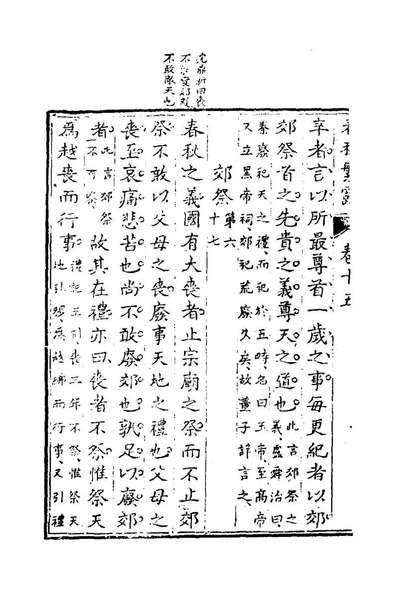 卷十五
卒者言以所最尊首一歲之事每更紀者以郊
郊祭首之先貴之義尊天之道也此言郊祭之義盧舜治曰
秦廢祀天之禮而祀於五畤名曰五帝至高帝又立黑帝祠郊祀荒廢久矣故董子詳言之
郊祭第六十七
春秋之義國有大喪者止宗廟之祭而不止郊
祭不敢以父母之喪廢事天地之禮也父母之
喪至哀痛悲苦也尚不敢廢郊也孰足以廢郊
者此言郊祭不可廢故其在禮亦曰喪者不祭惟祭天
為越喪而行事禮記王制喪三年不祭惟祭天地為越紼而行事又引禮
沈鼎新曰喪
不郊
不敢天也